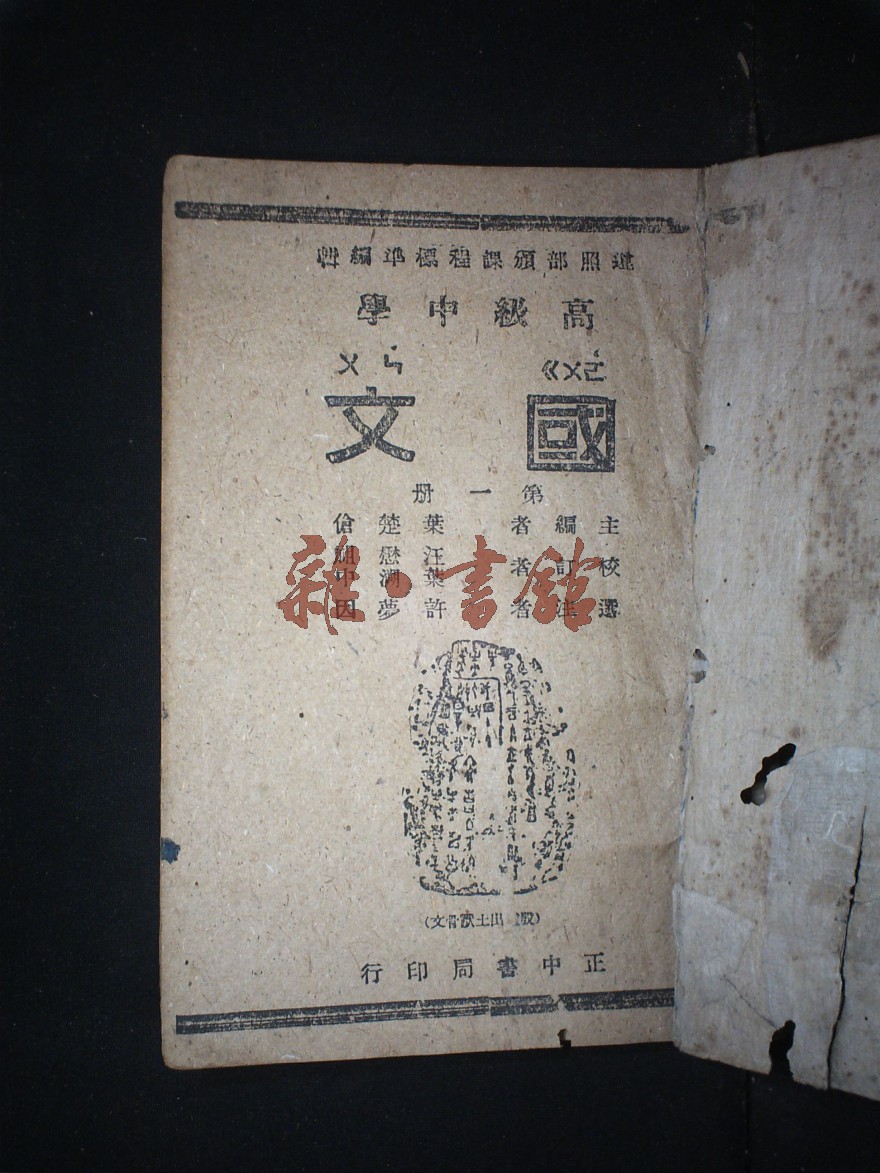 遵照部頒課程標準編輯
高級中學
ㄍㄨㄛˊ ㄨㄣˊ
國文
第一册
主編者 葉楚傖
校訂者 汪懋祖
葉溯中
選註者 許夢因
雜·書館
(殷 出土獸骨文)
正中書局印行